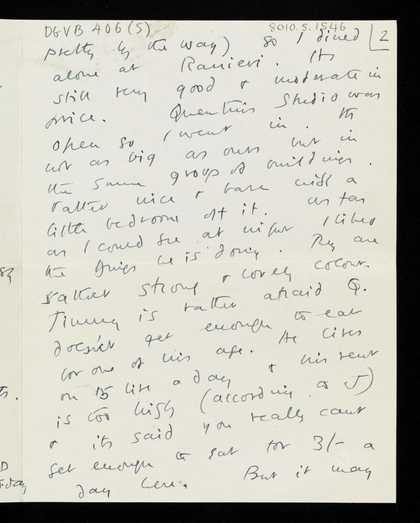 DGVB A06(5)
8010.5.1546
2
pretty by the way) so I dined
alone at Ranieri. Its
still very good & moderate in
price. Quentins Studio was
open so I went in. Its
not as big as ours but in
the same group of buildings.
rather nice & bare with a
little bedroom off it. as far
as I could see at night I liked
the things he is doing. They are
rather strong & lovely colour.
Jimmy is rather afraid Q.
doesn't get enough to eat
for one of his age. He lives
on 15 lire a day & his rent
is too high (according to J)
& its said you really cant
get enough to eat for 3/- a
day here. But it may